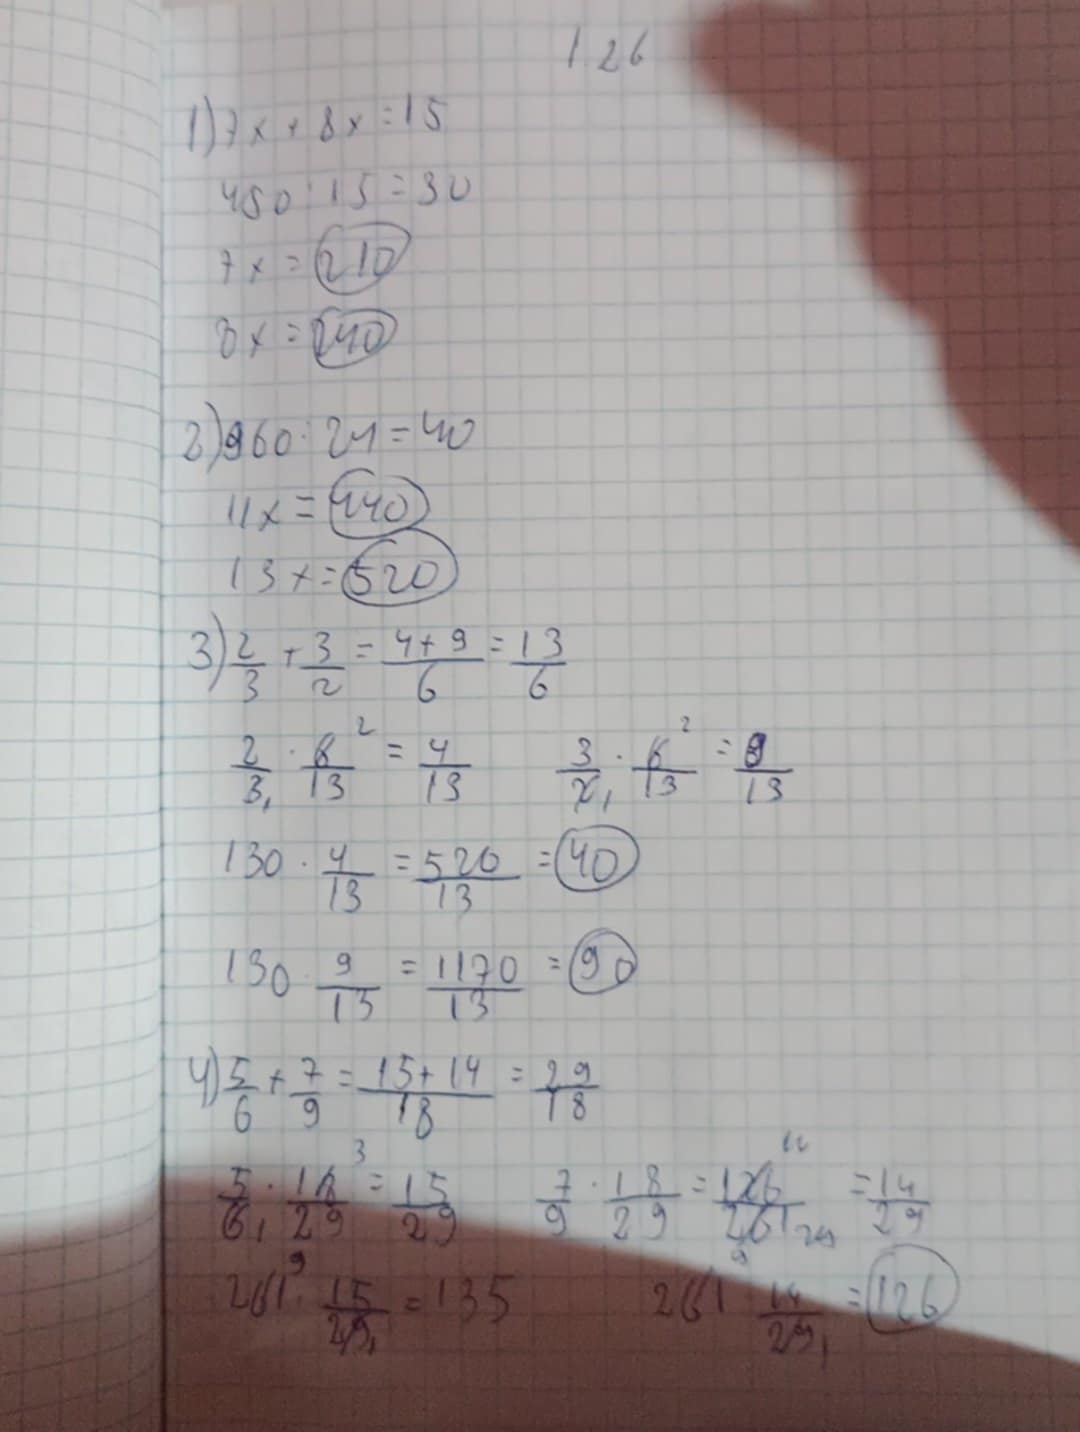 126
1) 7x + 8x = 15
450 : 15 = 30
7x = 210
8x = 240
2) 960 : 24 = 40
11x = 440
13x = 520
3) 2/3 + 3/2 = (4+9)/6 = 13/6
2/3 1 · 6/13 2 = 4/13   3/2 1 · 6/13 2 = 9/13
130 · 4/13 = 520/13 = 40
130 · 9/13 = 1170/13 = 90
4) 5/6 + 7/9 = (15+14)/18 = 29/18
5/6 1 · 18/29 3 = 15/29   7/9 · 18/29 = 126/261 14 29 = 14/29
261 9 · 15/29 1 = 135   261 9 · 14/29 1 = 126